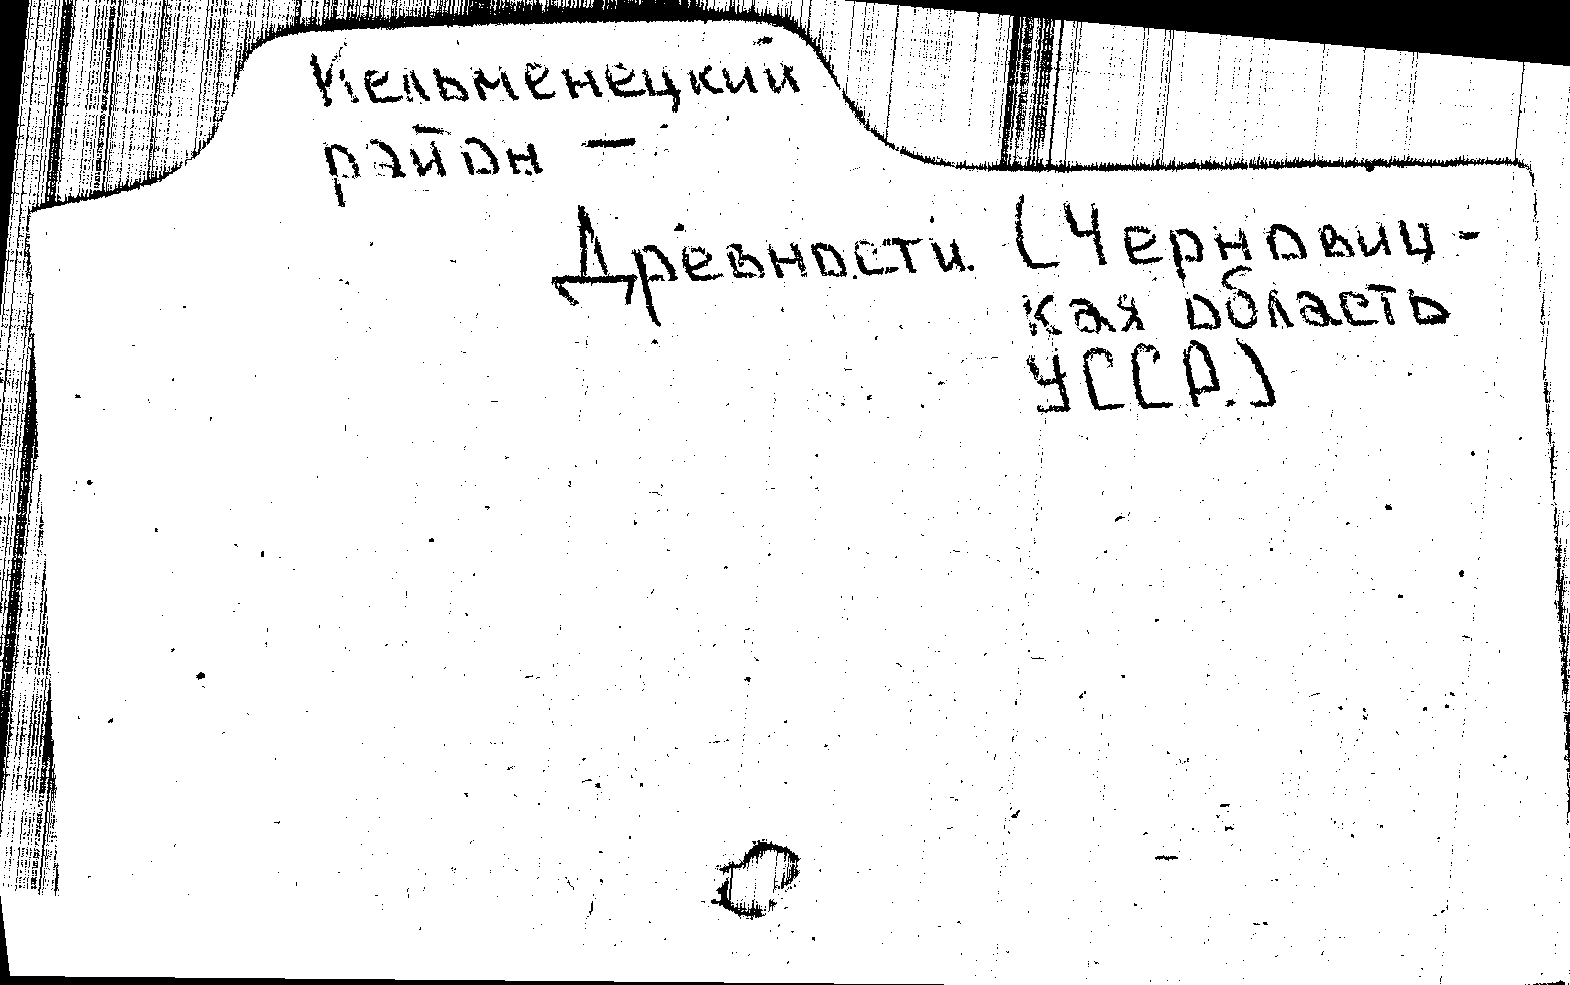 Кельменецкий
район —
Древности (Черновиц-
кая область
УССР.)